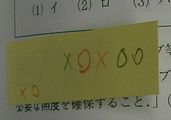 (1) イ　(2) ロ
×○×○○
×○
必要な照度を確保すること。」